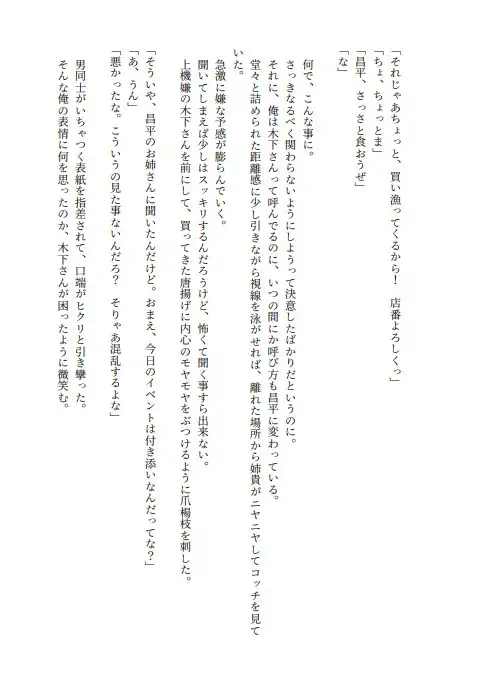 「それじゃあちょっと、買い漁ってくるから！　店番よろしくっ」
「ちょ、ちょっとま」
「昌平、さっさと食おうぜ」
「な」
何で、こんな事に。
さっきなるべく関わらないようにしようって決意したばかりだというのに。
それに、俺は木下さんって呼んでるのに、いつの間にか呼び方も昌平に変わっている。
堂々と詰められた距離感に少し引きながら視線を泳がせれば、離れた場所から姉貴がニヤニヤしてコッチを見て
いた。
急激に嫌な予感が膨らんでいく。
聞いてしまえば少しはスッキリするんだろうけど、怖くて聞く事すら出来ない。
上機嫌の木下さんを前にして、買ってきた唐揚げに内心のモヤモヤをぶつけるように爪楊枝を刺した。
「そういや、昌平のお姉さんに聞いたんだけど。おまえ、今日のイベントは付き添いなんだってな？」
「あ、うん」
「悪かったな。こういうの見た事ないんだろ？　そりゃあ混乱するよな」
男同士がいちゃつく表紙を指差されて、口端がヒクリと引き攣った。
そんな俺の表情に何を思ったのか、木下さんが困ったように微笑む。